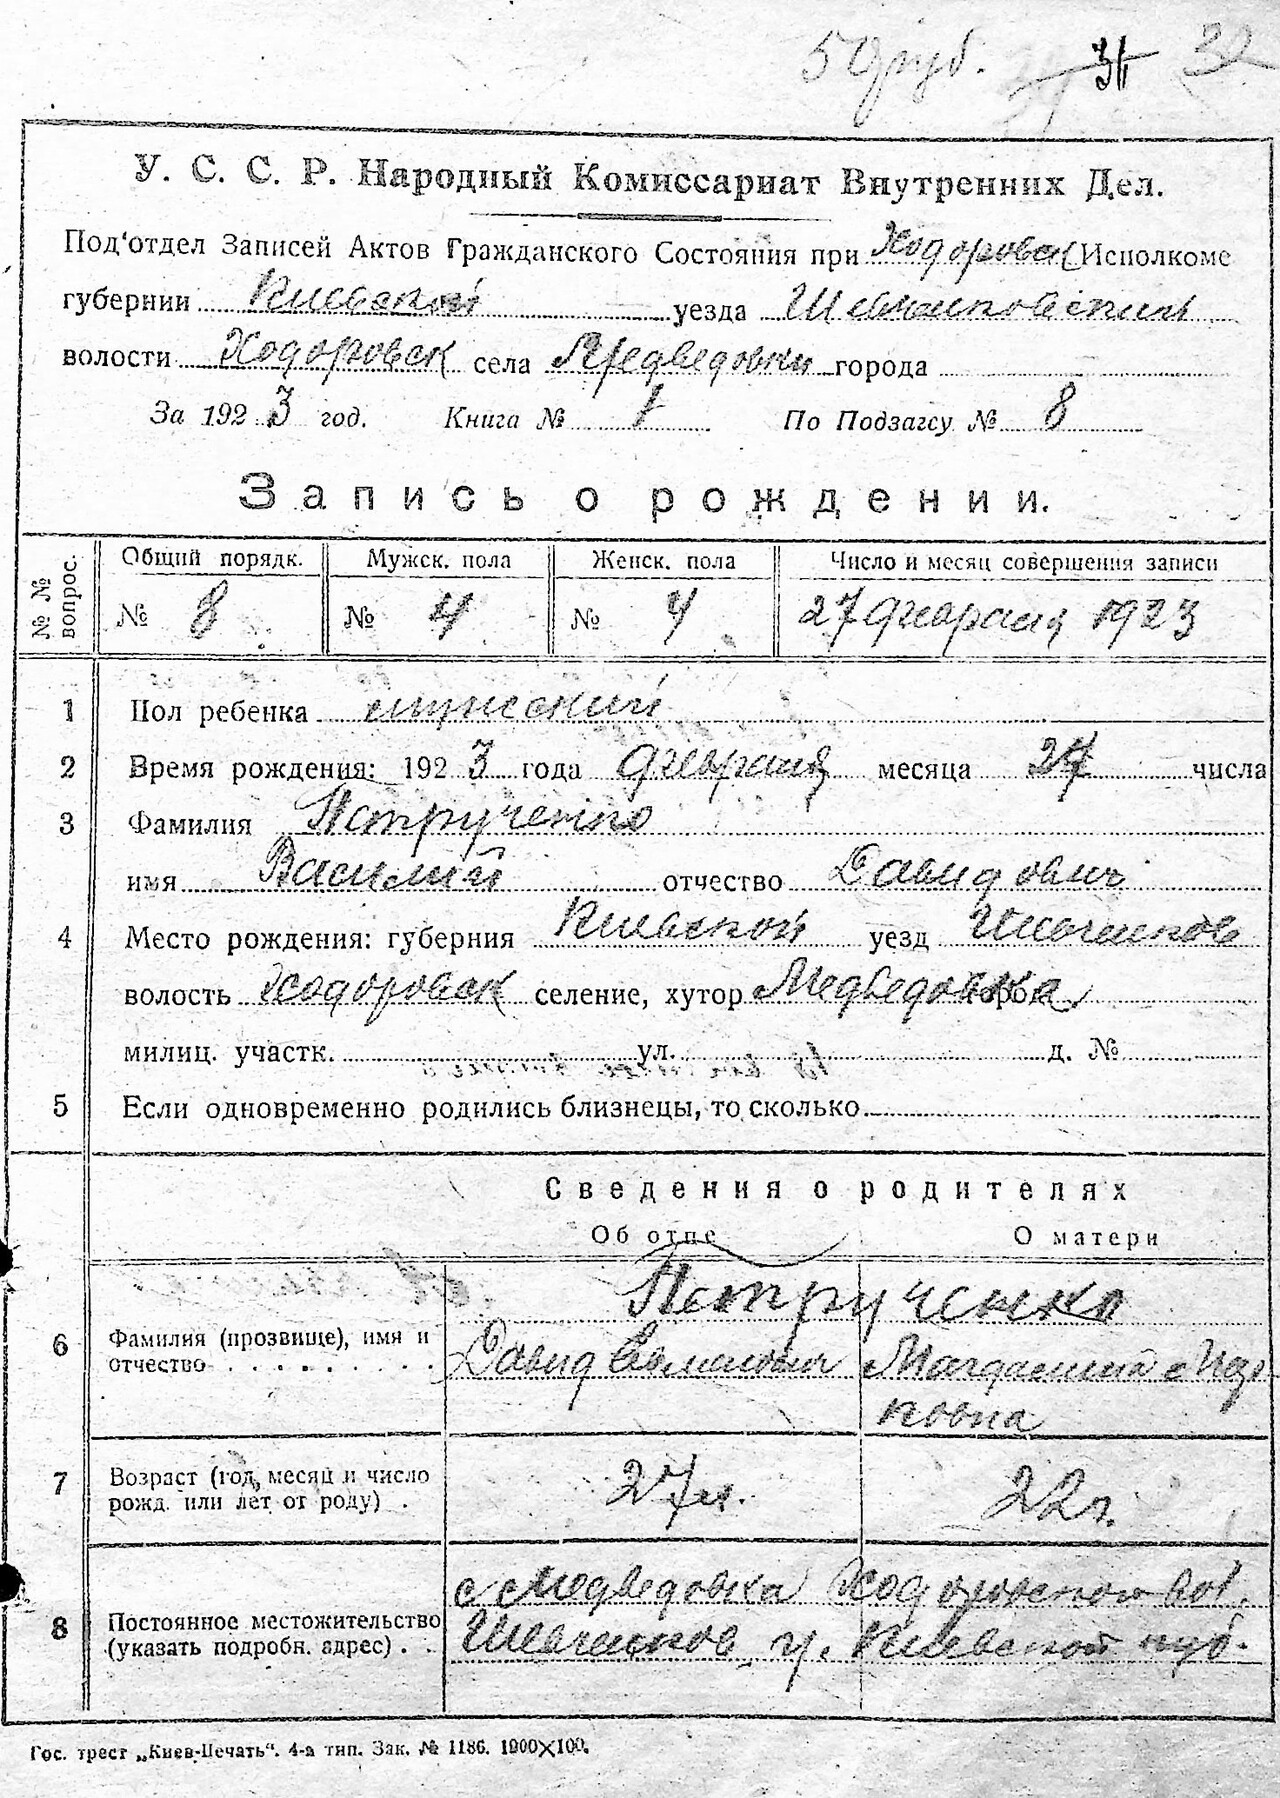 50 руб. 31 32
У. С. С. Р. Народный Комиссариат Внутренних Дел.
Под'отдел Записей Актов Гражданского Состояния при Ходоровск Исполкоме
губернии Киевской уезда Шевченковский
волости Ходоровск села Медведовки города
За 1923 год. Книга № 1 По Подзагсу № 8
Запись о рождении.
№ № вопрос. Общий порядк. Мужск. пола Женск. пола Число и месяц совершения записи
№ 8 № 4 № 4 27 февраля 1923
1 Пол ребенка мужеский
2 Время рождения: 1923 года февраля месяца числа
3 Фамилия Петрученко
имя Василий отчество Давидович
4 Место рождения: губерния Киевской уезд Шевченков
волость Ходоровск селение, хутор Медведовка город
милиц. участк. ул. д. №
5 Если одновременно родились близнецы, то сколько
Сведения о родителях
Об отце О матери
Петрученко
6 Фамилия (прозвище), имя и отчество Давид Магдалина
7 Возраст (год, месяц и число рожд. или лет от роду) . 27 л. 22 г.
8 Постоянное местожительство (указать подробн. адрес) . . с Медведовка Ходоровской вол.
Шевченков у. Киевской губ.
Гос. трест „Киев-Печать“. 4-а тип. Зак. № 1186. 1000×100.